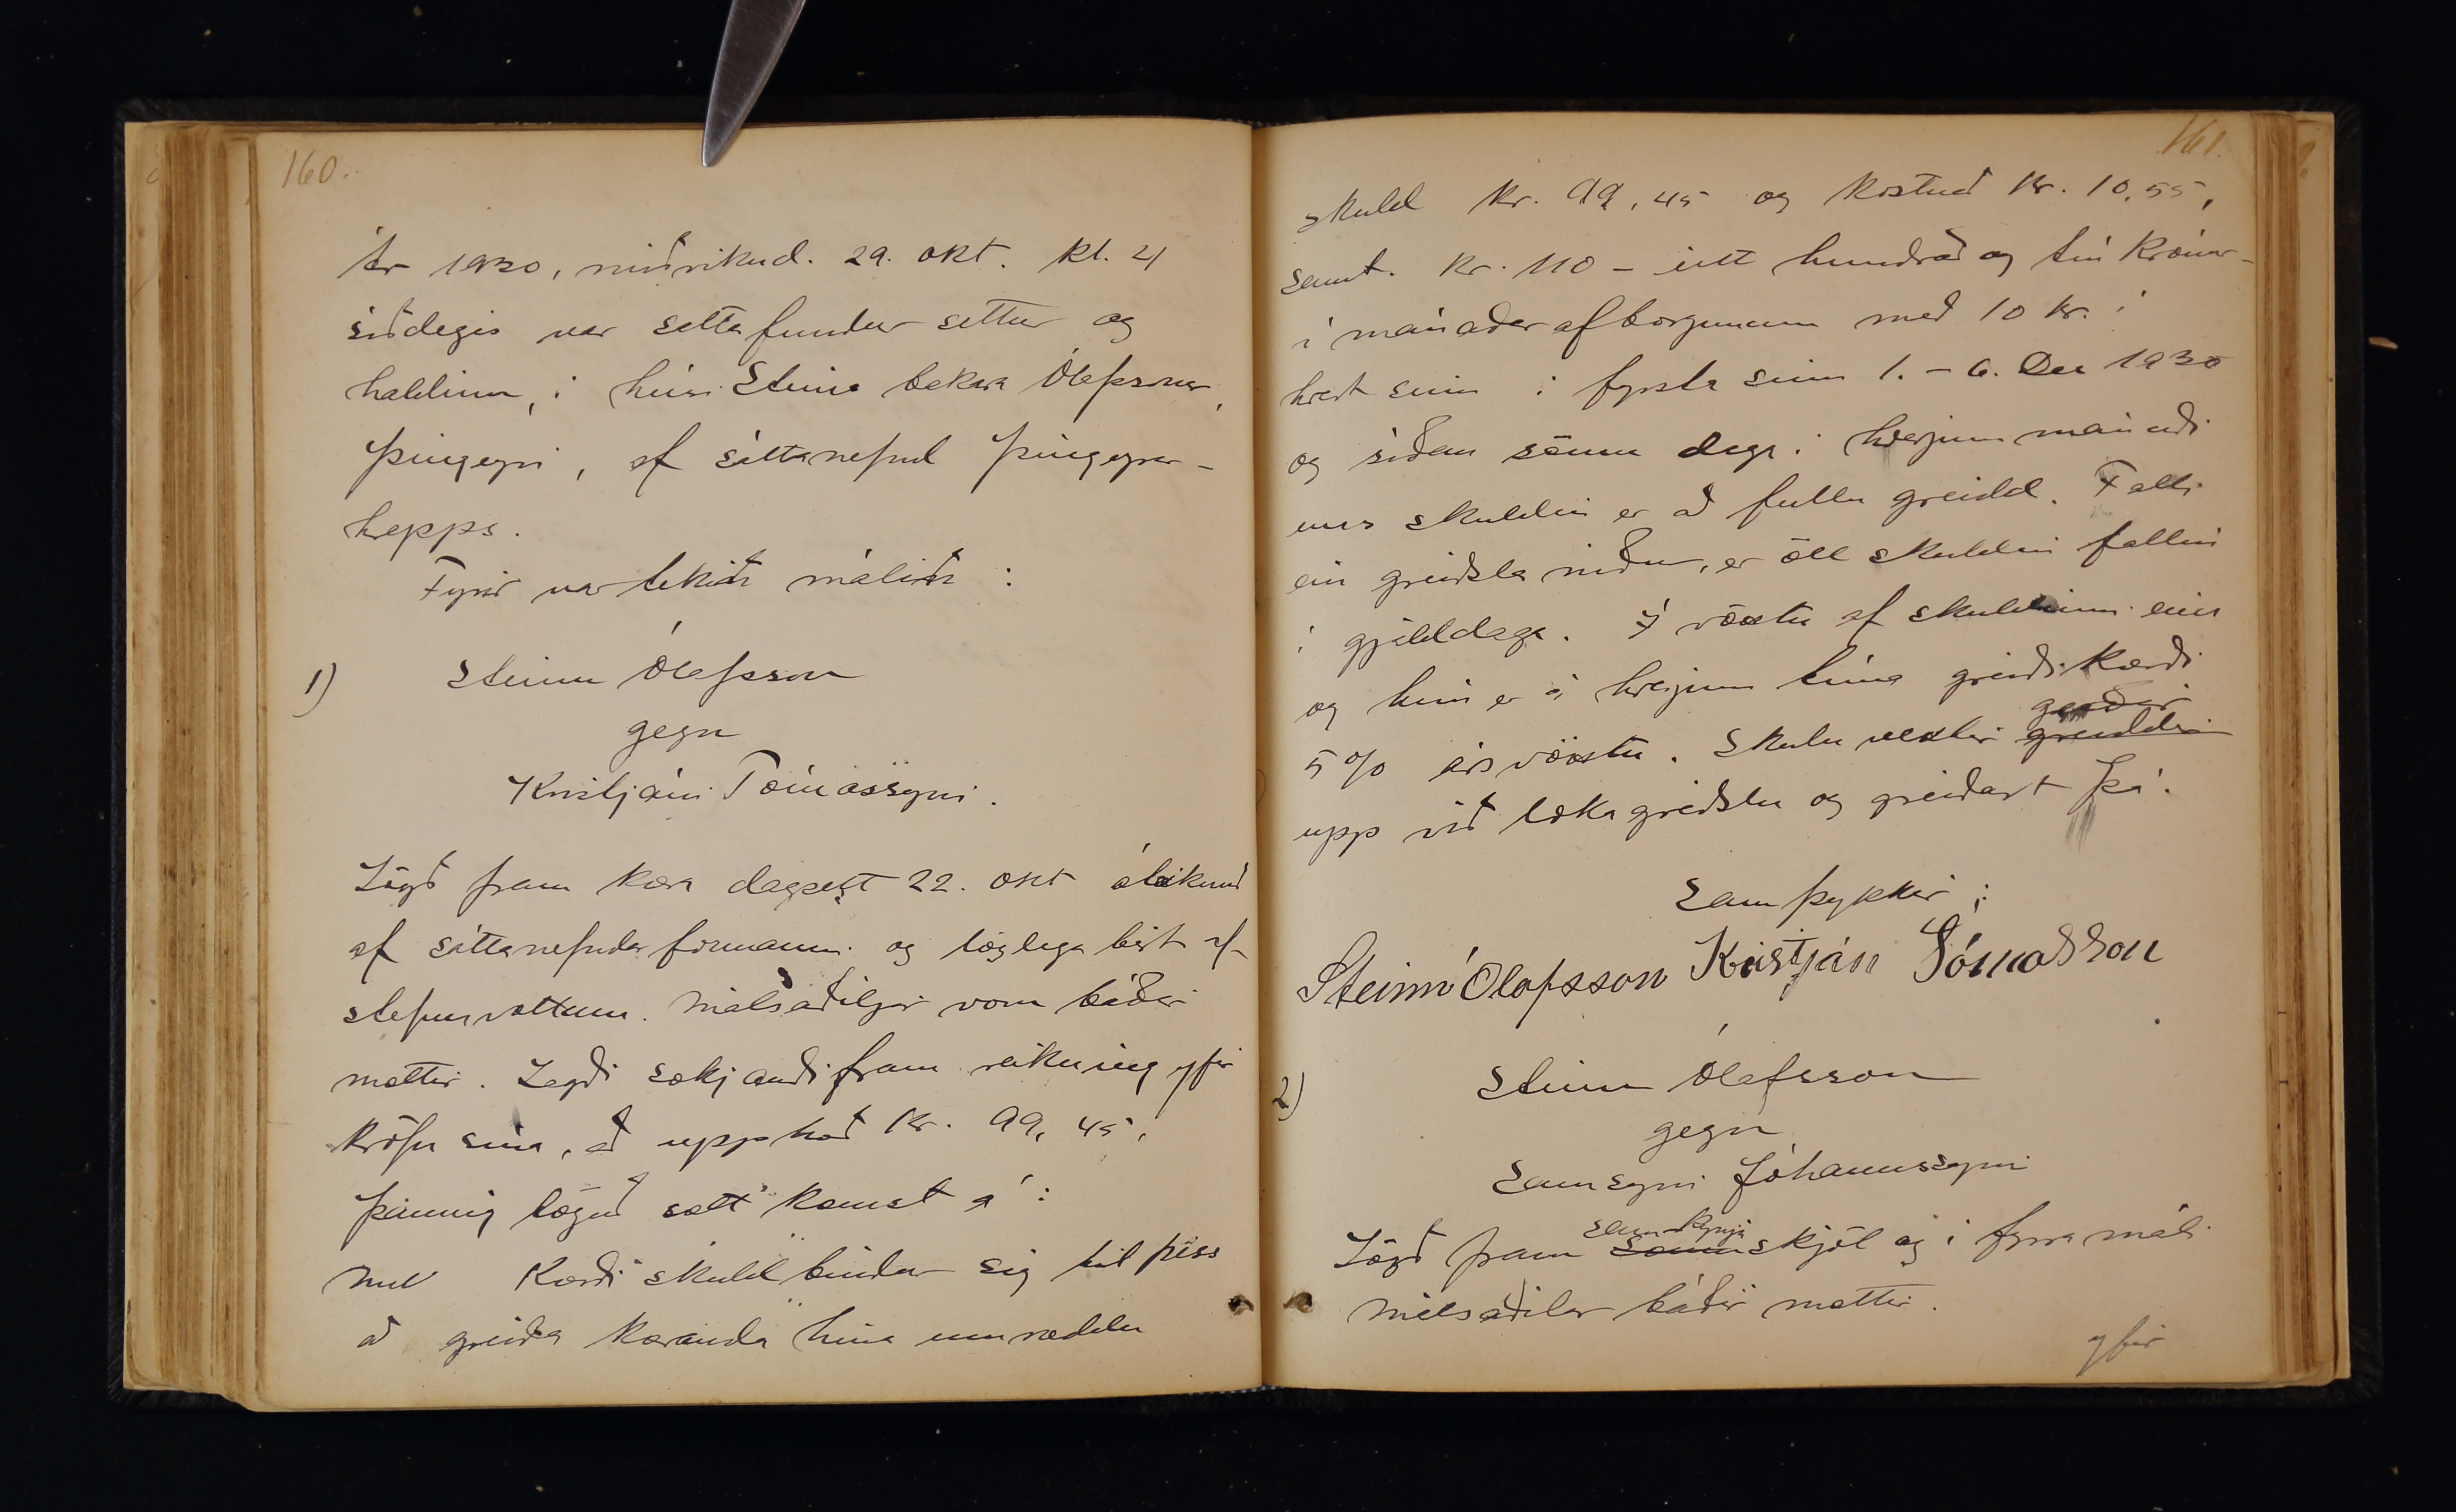 160.
Ár 1930, miðvikud. 29. okt. kl. 4
síðdegis var sáttafundur settur og
haldinn, í húsi Steins bakara Ólafssonar,
Þingeyri, af sáttanefnd Þingeyrar-
hrepps.
Fyrir var tekið málið:
1) Steinn Ólafsson
gegn
Kristjáni Tómassyni.
Lögð fram kæra dagsett 22. okt áteiknuð
af sáttanefndarformanni og löglega birt af
stefnuvottum. Málsaðiljar voru báðir
mættir. Lagði sækjandi fram reikning yfir
kröfu sína, að upphæð kr. 99,45,
Þannig löguð sátt komst á:
Kærði skuldbindur sig til þess
að greiða kæranda hina umræddu
161.
skuld kr. 99,45 og kostnað kr. 10,55,
samt. kr. 110 - eitt hundrað og tíu krónur -
í mánaðarafborgunum með 10 kr. í
hvert sinn í fyrsta sinn 1. - 6. Des 1930
og síðan sömu daga í hverjum mánuði
uns skuldin er að fullu greidd. Falli
ein greiðsla niður, er öll skuldin fallin
í gjalddaga. Í vöxtu af skuldinni eins
og hún er á hverjum tíma greiði kærði
5% ársvöxtu. Skulu vextir greiddir
upp við lokagreiðslu og greiðast þá.
Samþykkir:
Steinn Ólafsson Kristján Tómasson
2) Steinn Ólafsson
gegn
Samsyni Jóhannssyni
samkynja
Lögð fram skjöl og í fyrra máli
Málsaðilar báðir mættir.
yfir